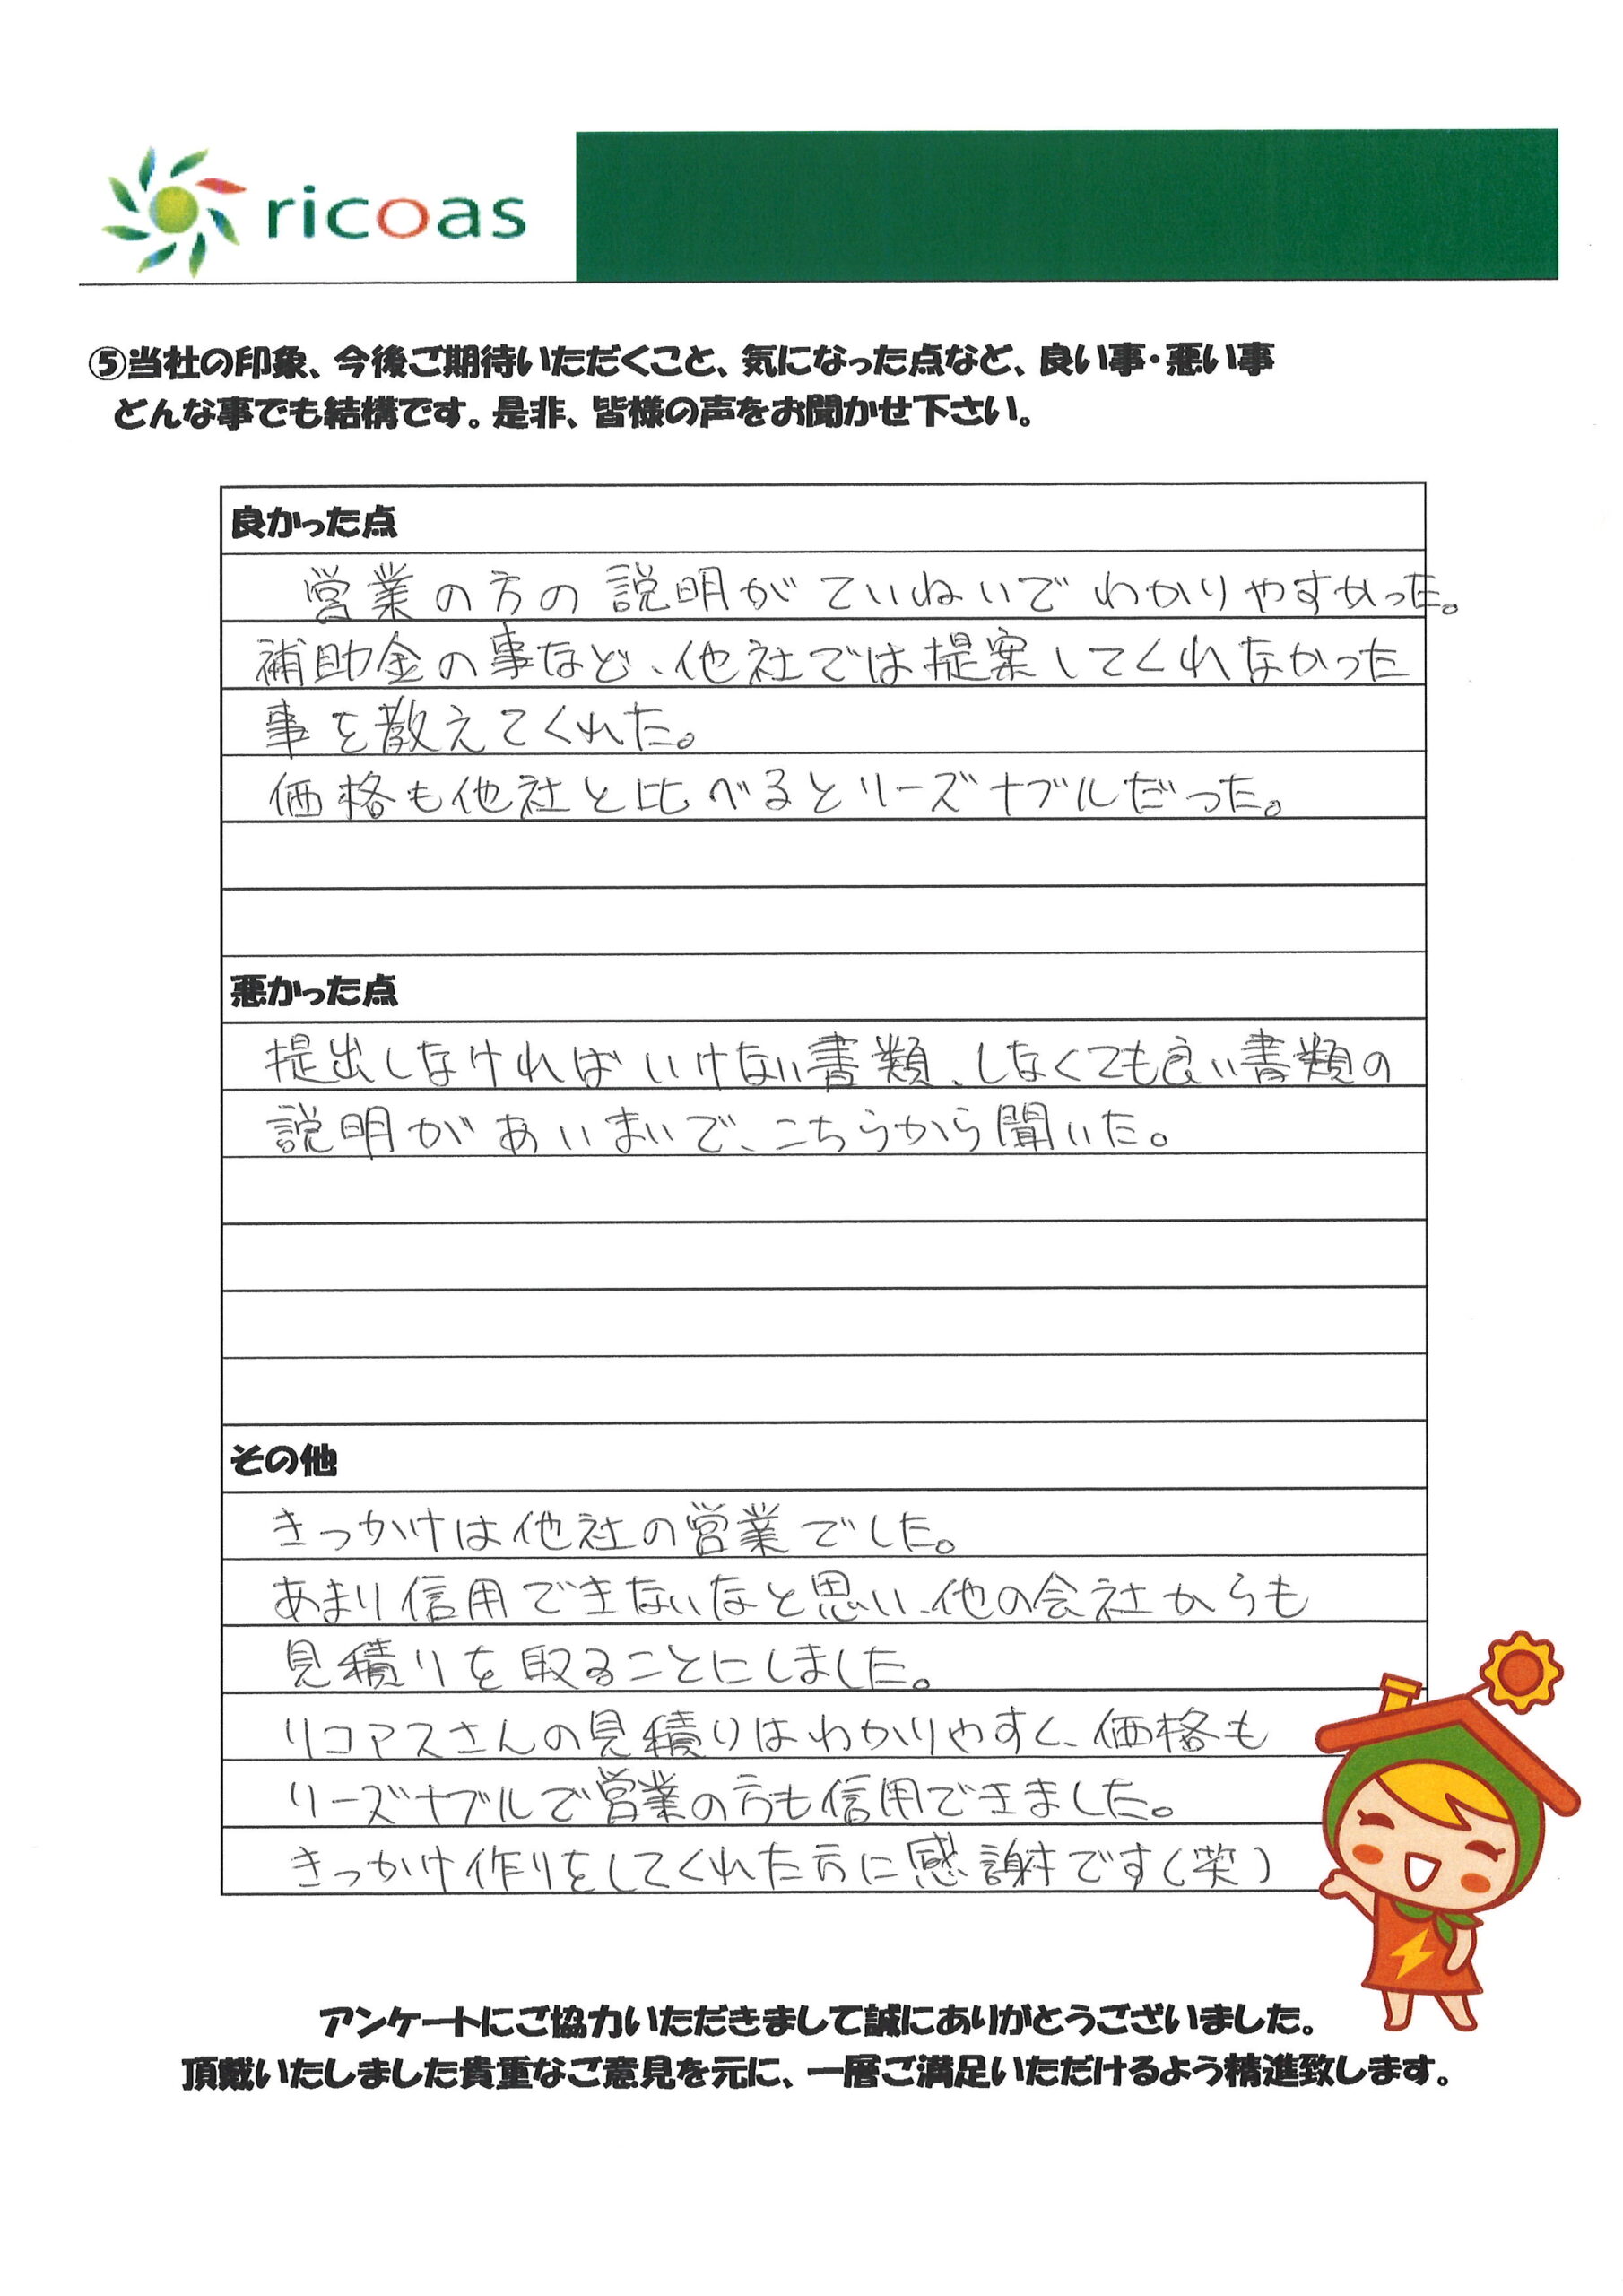 ricoas
⑤当社の印象、今後ご期待いただくこと、気になった点など、良い事・悪い事
どんな事でも結構です。是非、皆様の声をお聞かせ下さい。
良かった点
営業の方の説明がていねいでわかりやすかった。
補助金の事など、他社では提案してくれなかった
事を教えてくれた。
価格も他社と比べるとリーズナブルだった。
悪かった点
提出しなければいけない書類、しなくても良い書類の
説明があいまいで、こちらから聞いた。
その他
きっかけは他社の営業でした。
あまり信用できないなと思い、他の会社からも
見積りを取ることにしました。
リコアスさんの見積りはわかりやすく、価格も
リーズナブルで営業の方も信用できました。
きっかけ作りをしてくれた方に感謝です(笑)
アンケートにご協力いただきまして誠にありがとうございました。
頂戴いたしました貴重なご意見を元に、一層ご満足いただけるよう精進致します。